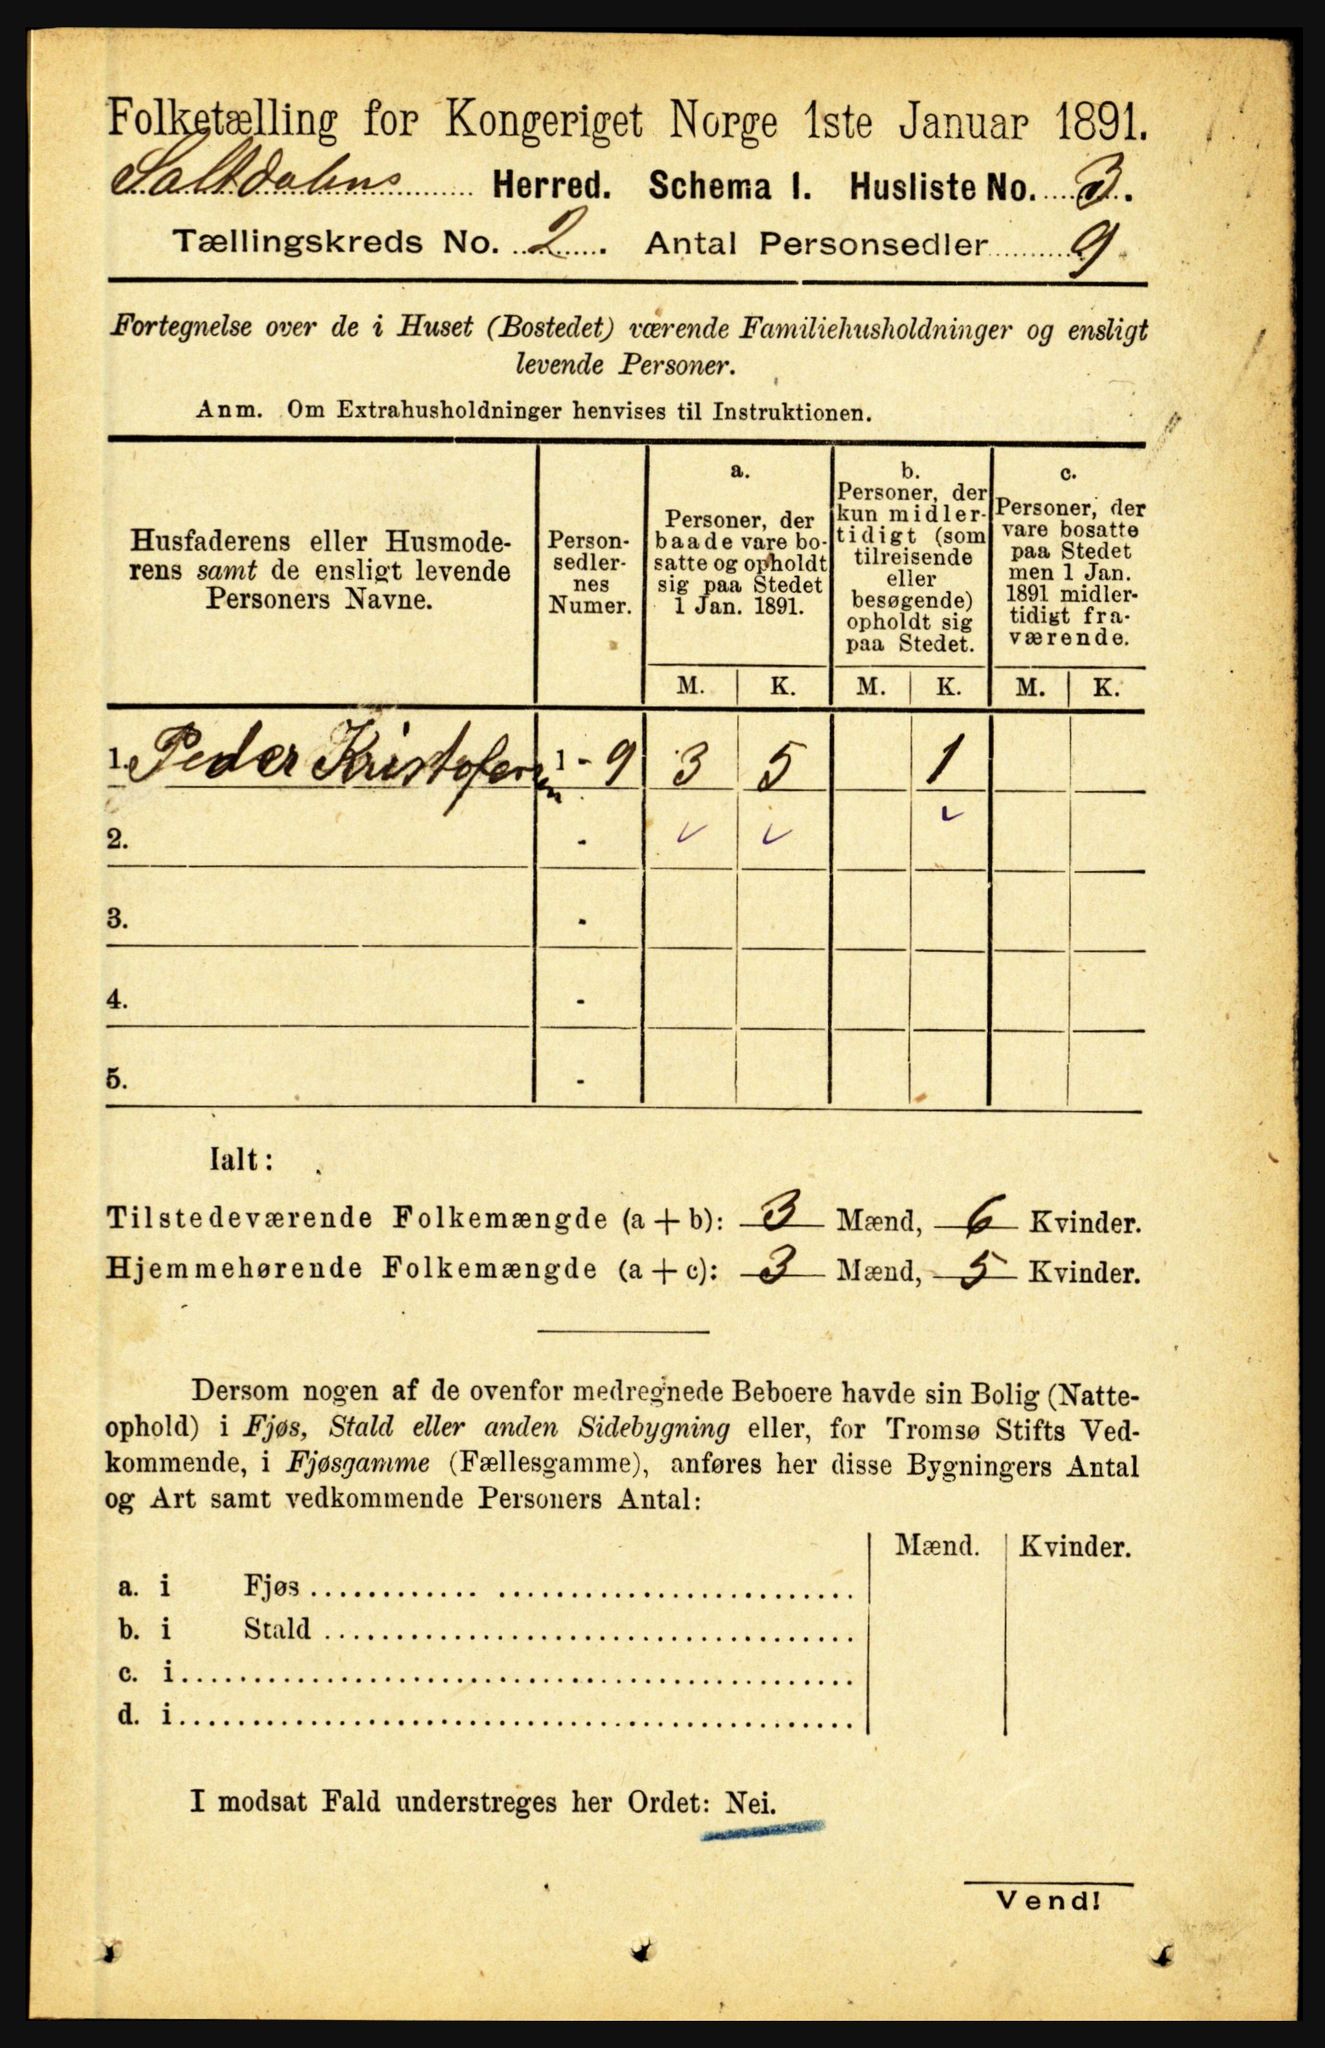 Folketælling for Kongeriget Norge 1ste Januar 1891.
Saltdalens Herred. Schema 1. Husliste No. 3.
Tællingskreds No. 2. Antal Personsedler 9
Fortegnelse over de i Huset (Bostedet) værende Familiehusholdninger og ensligt
levende Personer.
Anm. Om Extrahusholdninger henvises til Instruktionen.
Husfaderens eller Husmode-
rens samt de ensligt levende
Personers Navne.
Person-
sedler-
nes
Numer.
a.
Personer, der
baade vare bo-
satte og opholdt
sig paa Stedet
1 Jan. 1891.
b.
Personer, der
kun midler-
tidigt (som
tilreisende
eller
besøgende)
opholdt sig
paa Stedet.
c.
Personer, der
vare bosatte
paa Stedet
men 1 Jan.
1891 midler-
tidigt fra-
værende.
M. K. M. K. M. K.
1. Peder Kristofersen 1 - 9 3 5 1
2. -
3. -
4. -
5. -
Ialt:
Tilstedeværende Folkemængde (a + b): 3 Mænd, 6 Kvinder.
Hjemmehørende Folkemængde (a + c): 3 Mænd, 5 Kvinder.
Dersom nogen af de ovenfor medregnede Beboere havde sin Bolig (Natte-
ophold) i Fjøs, Stald eller anden Sidebygning eller, for Tromsø Stifts Ved-
kommende, i Fjøsgamme (Fællesgamme), anføres her disse Bygningers Antal
og Art samt vedkommende Personers Antal:
Mænd. Kvinder.
a. i Fjøs
b. i Stald
c. i
d. i
I modsat Fald understreges her Ordet: Nei.
Vend!